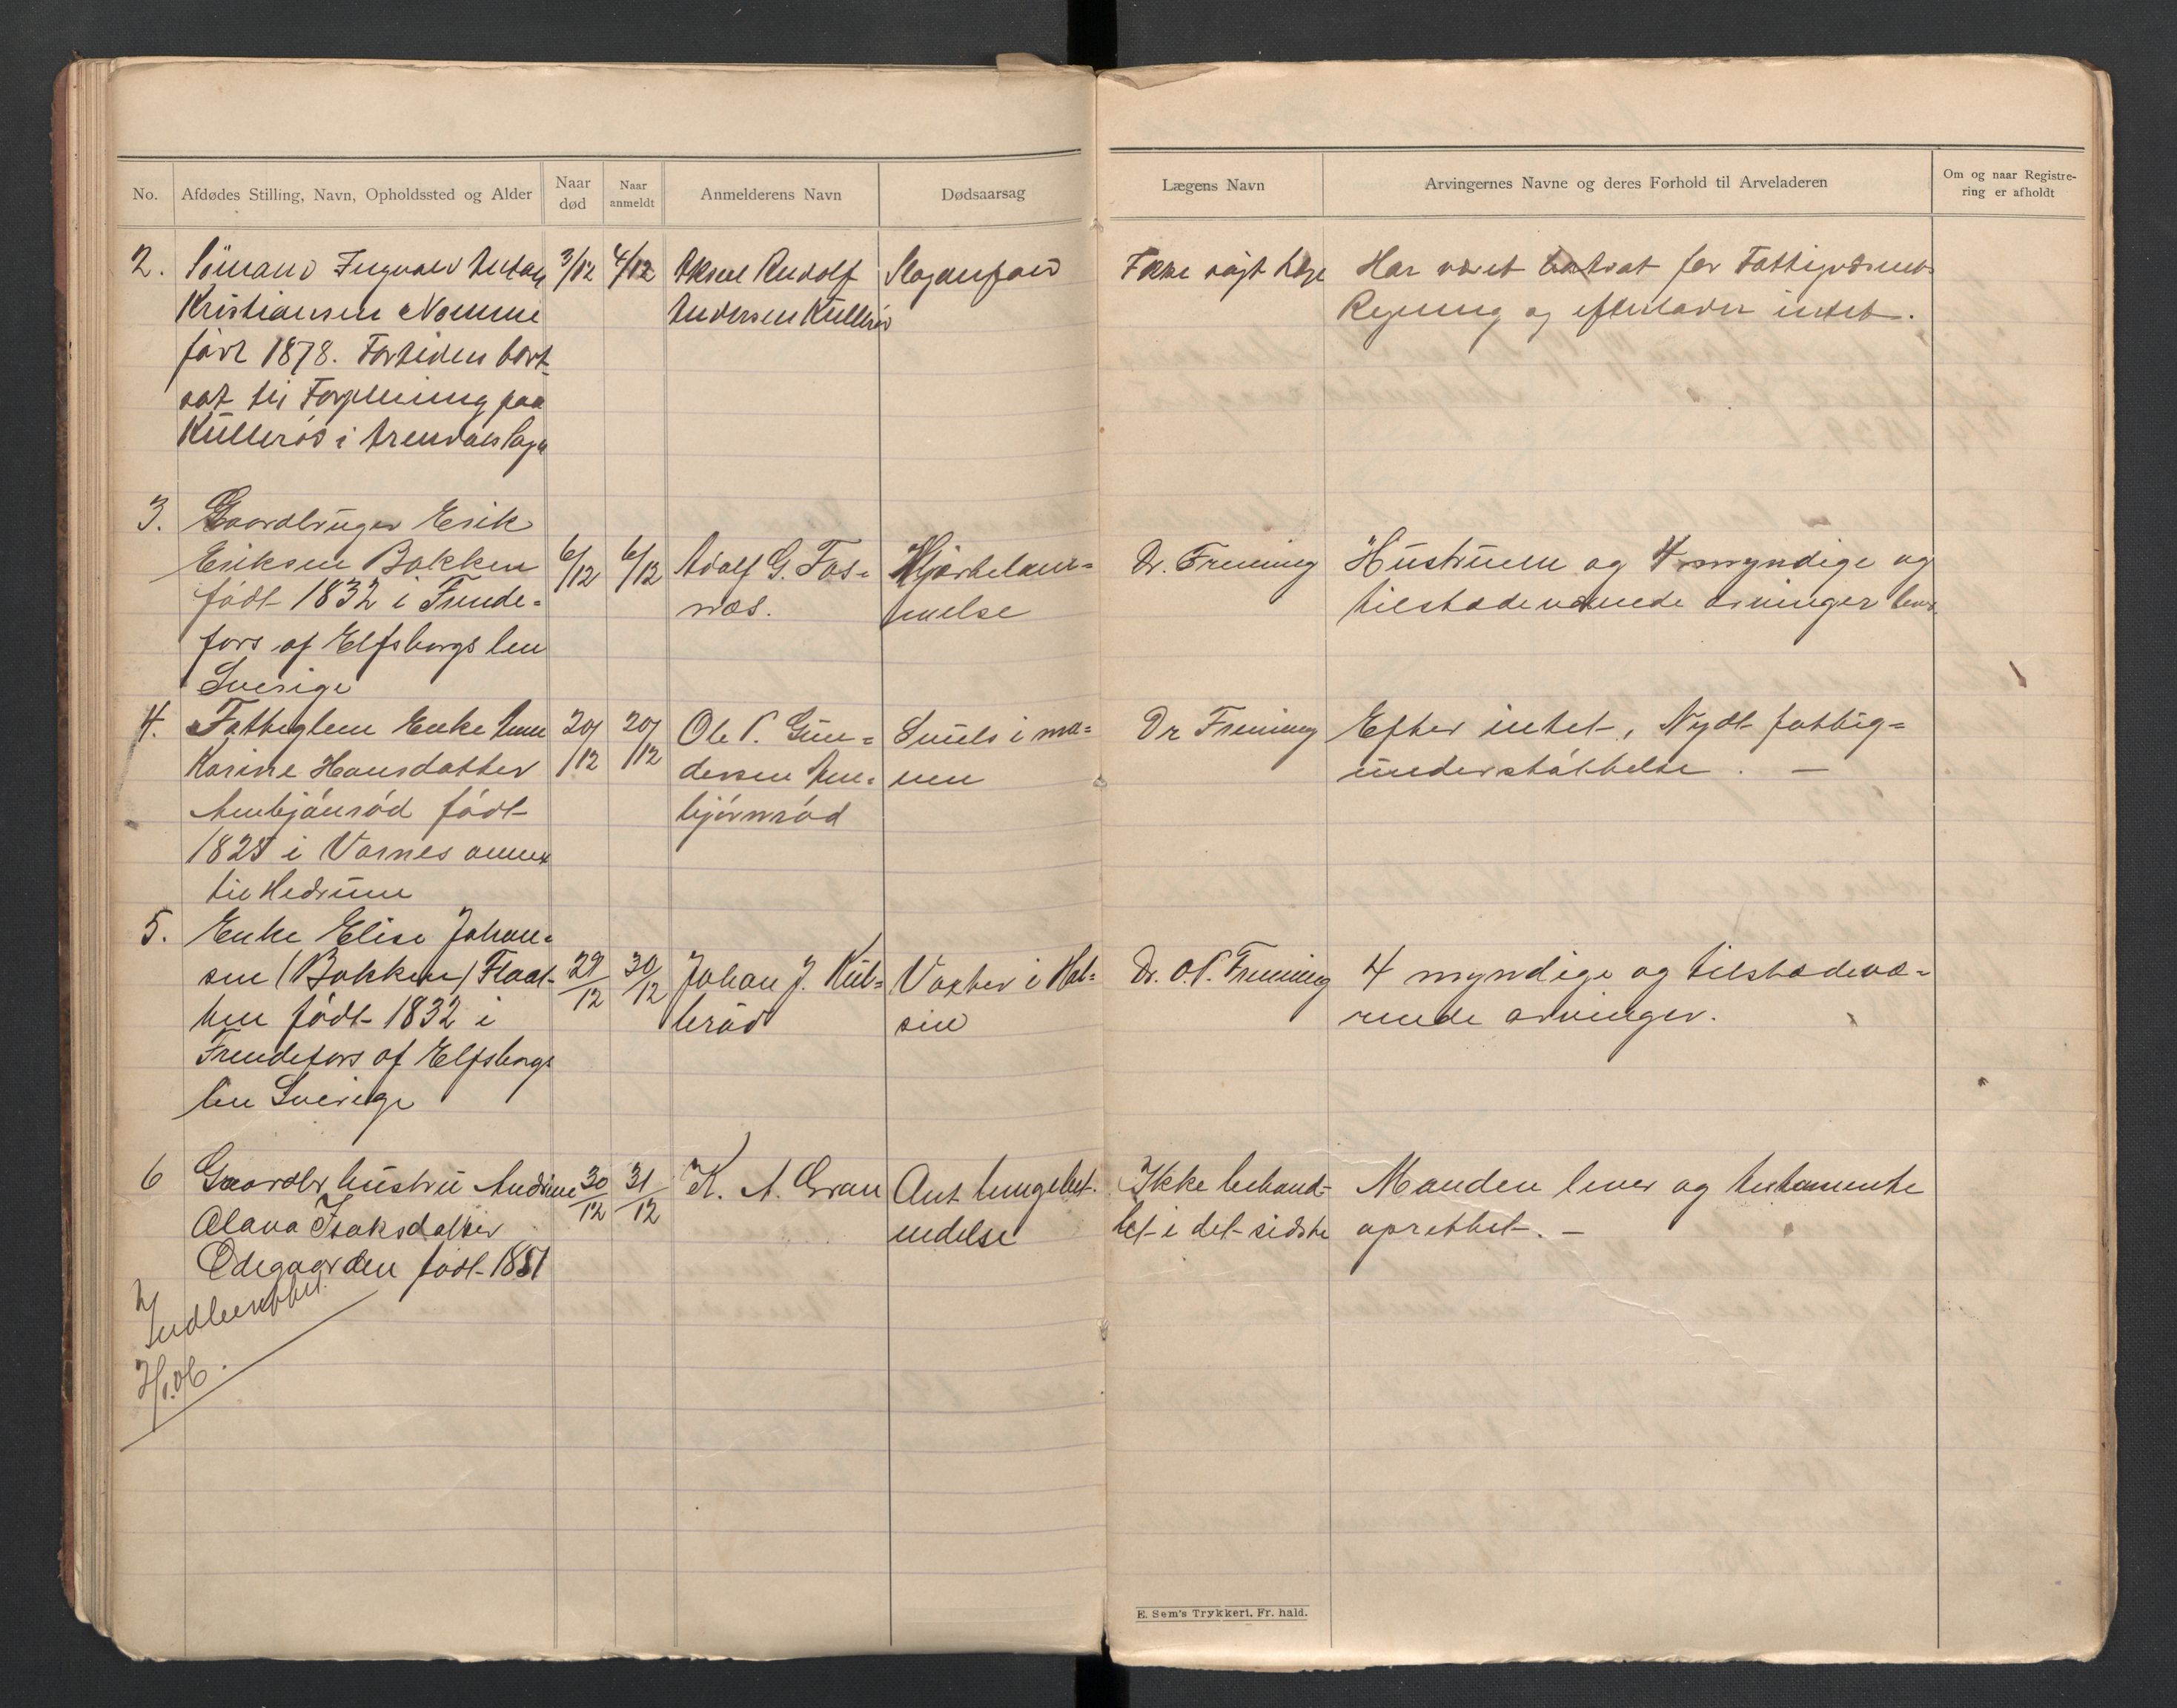 No.
Afdødes Stilling, Navn, Opholdssted og Alder
Naar død
Naar anmeldt
Anmelderens Navn
Dødsaarsag
Lægens Navn
Arvingernes Navne og deres Forhold til Arveladeren
Om og naar Registrering er afholdt
2. Sömand Ingvald Anton
Kristiansen Nomme
född 1878. Fortiden bort-
sat til Forpleining paa
Kullerö i Brendalslagen
3/12
4/12
Aksel Rudolf
Andersen Kullerö
Slaganfald
Ikke søgt Læge
Har været bortsat for Fattigvæsenets
Regning og efterlader intet.
3. Gaardbruger Erik
Eriksen Bakken
född 1832 i Frende-
fors af Elfsborgs len
Sverige
6/12
6/12
Adolf G. Fos-
næs.
Hjertelam-
melse
Dr. Freming
Hustruen og 4 myndige og
tilstedeværende arvinger
4. Fattiglem Enke Anne
Karine Hansdatter
Anbjönröd född
1825 i Varnes annex
til Hedrum
20/12
20/12
Ole P. Gun-
dersen An-
björnröd
Saar i ma-
ven
Dr Freming
Efter intet, Nydt fattig-
understöttelse. —
5. Enke Elise Johan-
sen (Bakken) Flaat-
ten född 1832 i
Frendefors af Elfsborgs
len Sverige
29/12
30/12
Johan J. Kul-
leröd
Vækster i Hal-
sen
Dr. O.P. Freming
4 myndige og tilstedevæ-
rende arvinger.
6 Gaardbr hustru Andrine
Olava Isaksdatter
Ödegaarden född 1851
30/12
31/12
K. A. Gran
Ant. lungebet-
endelse
Ikke behand-
let i det sidste
Manden lever og testamente
oprettet. —
Indberettet
2/1.06.
E. Sem's Trykkeri, Fr. hald.